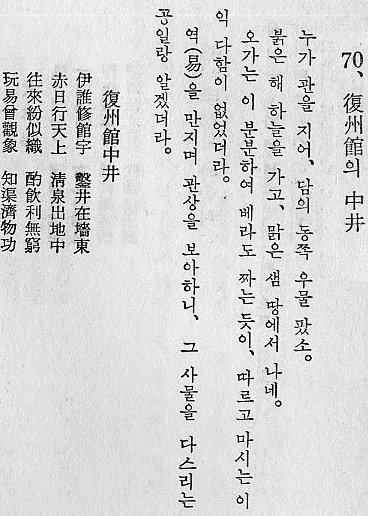 70、復州館의 中井
누가 관을 지어, 담의 동쪽 우물 팠소。
붉은 해 하늘을 가고, 맑은 샘 땅에서 나네。
오가는 이 분분하여 베라도 짜는 듯이, 따르고 마시는 이
익 다함이 없었더라。
역(易)을 만지며 관상을 보아하니, 그 사물을 다스리는
공일랑 알겠더라。
復州館中井
伊誰修館宇 鑿井在墻東
赤日行天上 清泉出地中
往來紛似織 酌飮利無窮
玩易曾觀象 知渠濟物功